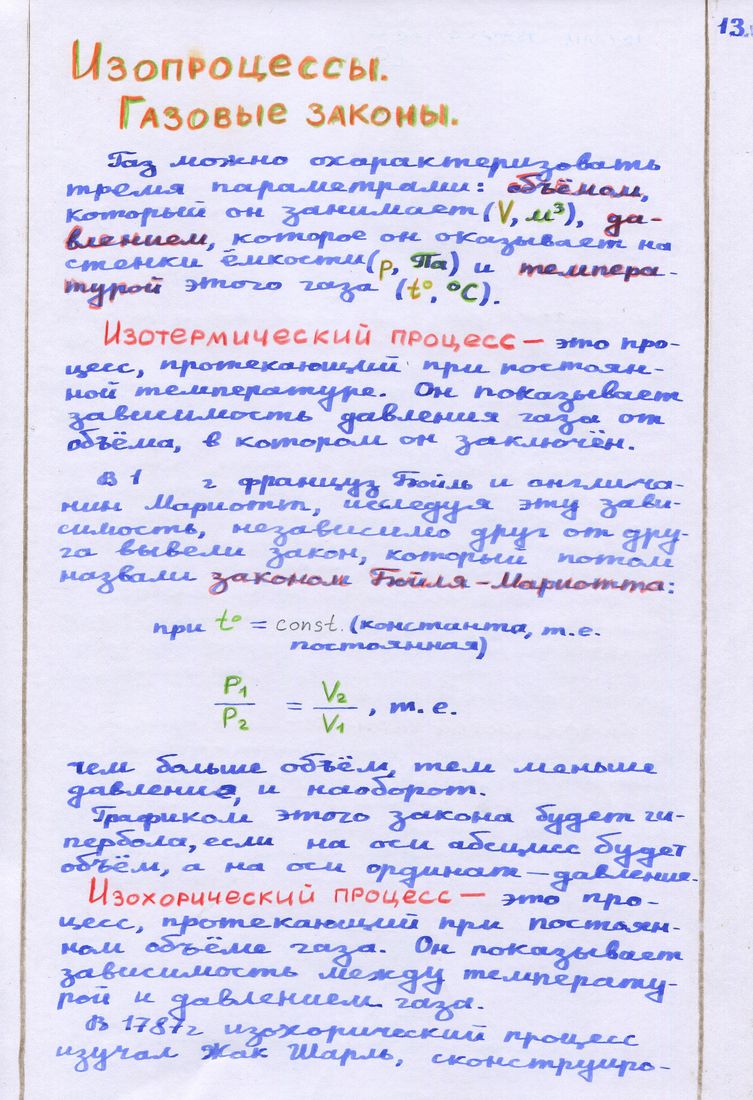 13.
Изопроцессы.
Газовые законы.
Газ можно охарактеризовать
тремя параметрами: объёмом,
который он занимает (V, м³), да-
влением, которое он оказывает на
стенки ёмкости (p, Па) и темпера-
турой этого газа (t°, °C).
Изотермический процесс — это про-
цесс, протекающий при постоян-
ной температуре. Он показывает
зависимость давления газа от
объёма, в котором он заключён.
В 1 г француз Бойль и англича-
нин Мариотт, исследуя эту зави-
симость, независимо друг от дру-
га вывели закон, который потом
назвали законом Бойля-Мариотта:
при t° = const. (константа, т.е.
постоянная)
P₁/P₂ = V₂/V₁, т.е.
чем больше объём, тем меньше
давление, и наоборот.
Графиком этого закона будет ги-
пербола, если на оси абсцисс будет
объём, а на оси ординат — давление.
Изохорический процесс — это про-
цесс, протекающий при постоян-
ном объёме газа. Он показывает
зависимость между температу-
рой и давлением газа.
В 1787г изохорический процесс
изучал Жак Шарль, сконструиро-